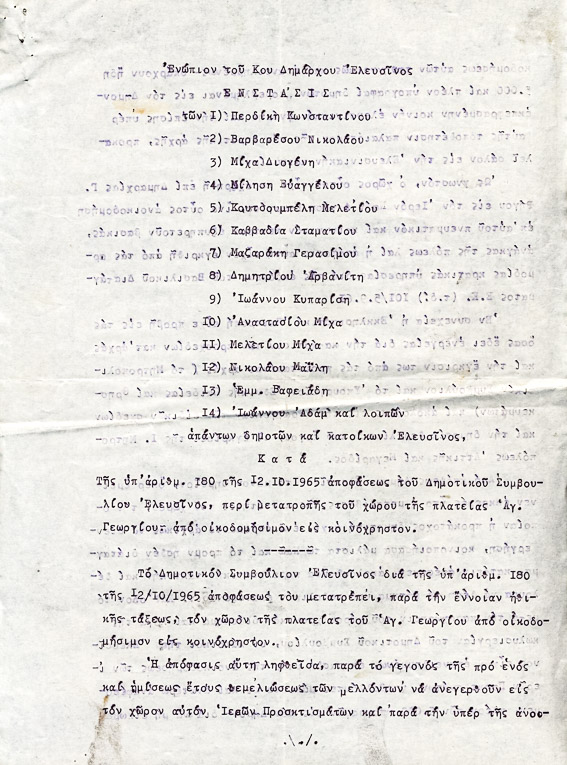 Ἐνώπιον τοῦ Κου Δημάρχου Ἐλευσῖνος
Ε Ν Σ Τ Α Σ Ι Σ
τῶν 1) Περδίκη Κωνσταντίνου
2) Βαρβαρέσου Νικολάου
3) Μίχα Διογένη
4) Μίληση Εὐαγγέλου
5) Κουτσουμπέλη Μελετίου
6) Καββαδία Σταματίου
7) Μαζαράκη Γερασίμου
8) Δημητρίου Ἀρβανίτη
9) Ἰωάννου Κυπαρίση
10) Ἀναστασίου Μίχα
11) Μελετίου Μίχα
12) Νικολάου Μαΐλη
13) Ἐμμ. Βαφειάδη
14) Ἰωάννου Ἀδάμ καί λοιπῶν
ἁπάντων δημοτῶν καί κατοίκων Ἐλευσῖνος,
Κ α τ ά
Τῆς ὑπ'ἀριθμ. 180 τῆς 12.10.1965 ἀποφάσεως τοῦ Δημοτικοῦ Συμβου-
λίου Ἐλευσῖνος, περί μετατροπῆς τοῦ χώρου τῆς πλατείας Ἁγ.
Γεωργίου ἀπό οἰκοδομήσιμον εἰς κοινόχρηστον.
-------
Τό Δημοτικόν Συμβούλιον Ἐλευσῖνος διά τῆς ὑπ'ἀριθμ. 180
τῆς 12/10/1965 ἀποφάσεώς του μετατρέπει, παρά τήν ἔννοιαν ἠθι-
κῆς τάξεως, τόν χῶρον τῆς πλατείας τοῦ Ἁγ. Γεωργίου ἀπό οἰκοδο-
μήσιμον εἰς κοινόχρηστον.
Ἡ ἀπόφασις αὕτη ληφθεῖσα, παρά τό γεγονός τῆς πρό ἑνός
καί ἡμίσεως ἔτους θεμελιώσεως τῶν μελλόντων νά ἀνεγερθοῦν εἰς
τόν χῶρον αὐτόν Ἱερῶν Προσκτισμάτων καί παρά τήν ὑπέρ τῆς ἀνοι-
.\./.